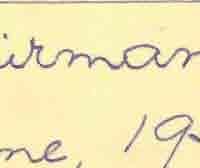 irman
ne, 19